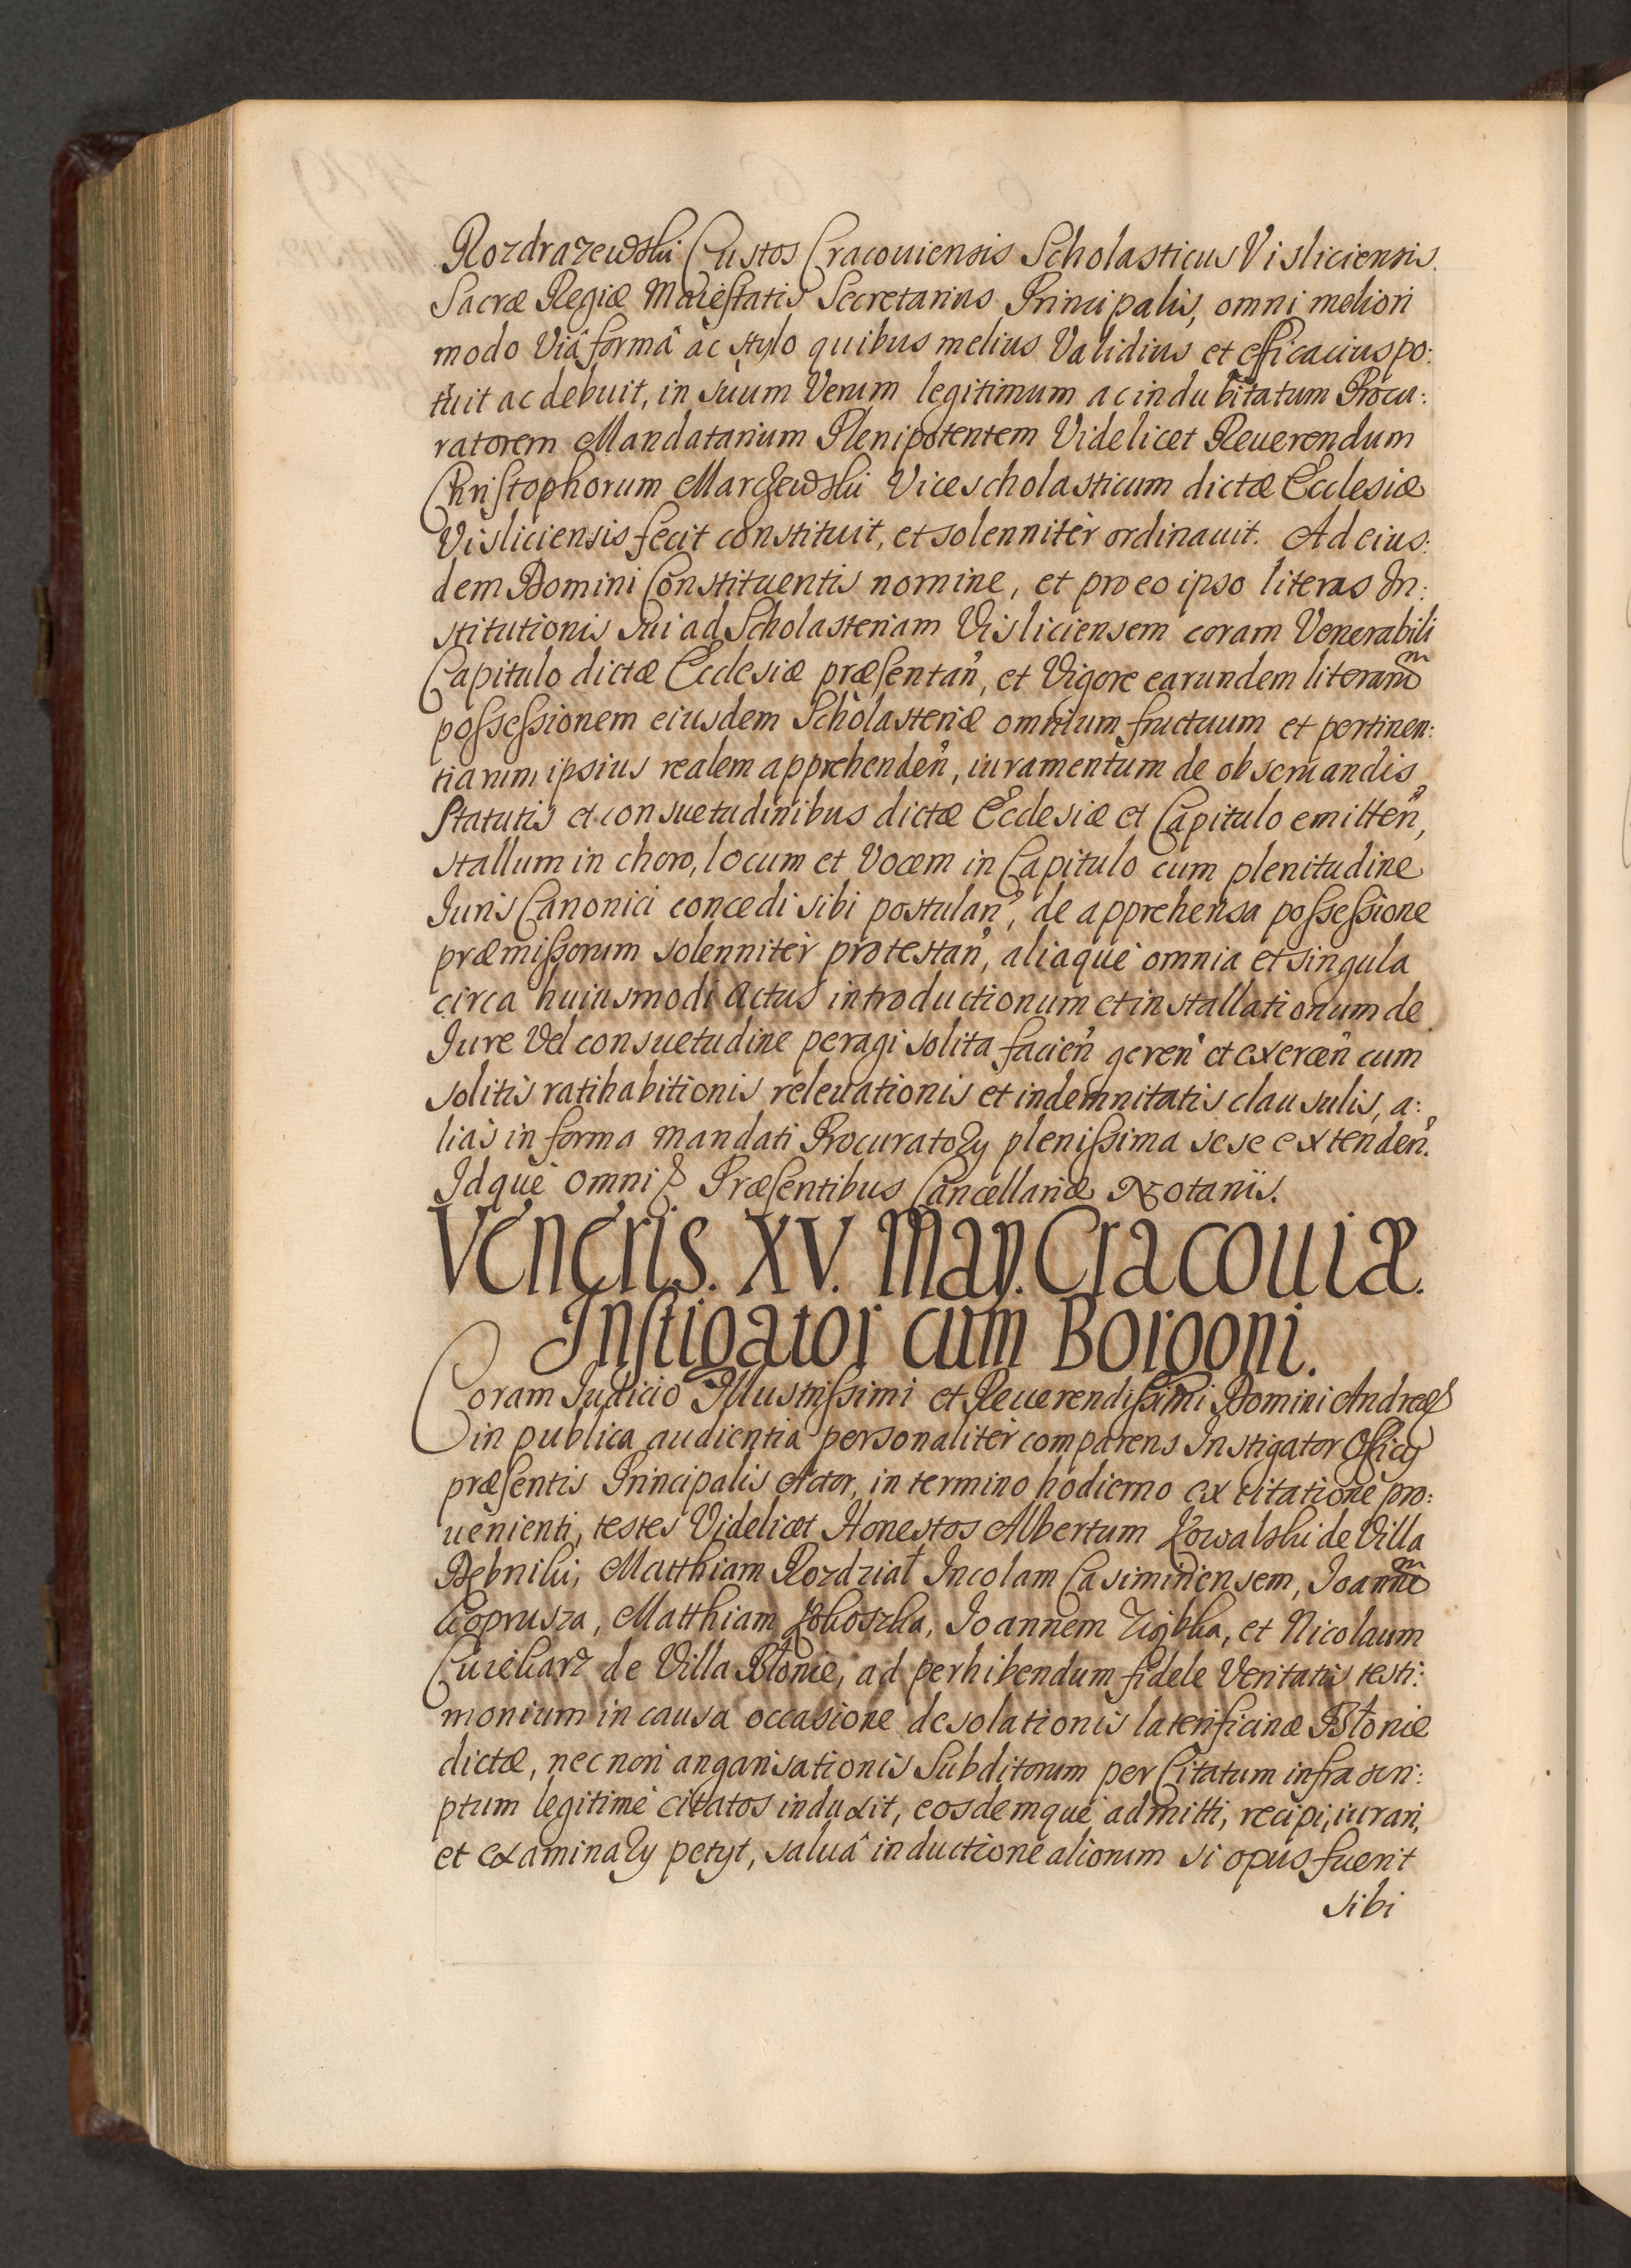 Rozdrazewski Custos Cracouiensis Scholasticus Visliciensis.
Sacræ Regiæ Maiestatis Secretarius Principalis, omni meliori
modo Viâ formâ ac stylo quibus melius Validius et efficacius po:
tuit ac debuit, in suum Verum legitimum ac indubitatum Procu:
ratorem Mandatarium Plenipotentem Videlicet Reuerendum
Christophorum Marczewski Vicescholasticum dictæ Ecclesiæ
Visliciensis fecit constituit, et solenniter ordinauit. Ad eius:
dem Domini Constituentis nomine, et pro eo ipso literas In:
stitutionis sui ad Scholasteriam Visliciensem coram Venerabili
Capitulo dictæ Ecclesiæ præsentan̉, et Vigore earundem literarum
possessionem eiusdem Scholasteriæ omnium fructuum et pertinen:
tiarum ipsius realem apprehenden̉, iuramentum de obseruandis
Statutis et consuetudinibus dictæ Ecclesiæ et Capitulo emitten̉,
stallum in choro, locum et Vocem in Capitulo cum plenitudine
Iuris Canonici concedi sibi postulan̉, de apprehensa possessione
præmissorum solenniter protestan̉, aliaque omnia et singula
circa huiusmodi actus introductionum et installationum de
Iure Vel consuetudine peragi solita facien̉ geren̉ et exercen̉ cum
solitis ratihabitionis releuationis et indemnitatis clausulis, a:
lias in forma mandati Procuratorÿ plenissima sese extenden̉.
Idque omni Præsentibus Cancellariæ Notariis.
Veneris. XV. May. Cracouiæ.
Instigator cum Borgoni.
Coram Iudicio Illustrissimi et Reuerendissimi Domini Andreæ
in publica audientia personaliter comparens Instigator Officÿ
præsentis Principalis Actor, in termino hodierno ex citatione pro:
uenienti, testes Videlicet Honestos Albertum Kowalski de Villa
Dębniki, Matthiam Rozdział Incolam Casimiriensem, Ioannem
Koprusza, Matthiam Kokoszka, Ioannem , et Nicolaum
de Villa Błonie, ad perhibendum fidele Veritatis testi:
monium in causa occasione desolationis laterificinæ Błonie
dictæ, nec non angarisationis Subditorum per Citatum infra scri:
ptum legitime citatos induxit, eosdemque admitti, recipi, iurari,
et examinary petyt, saluâ inductione aliorum si opus fuerit
sibi